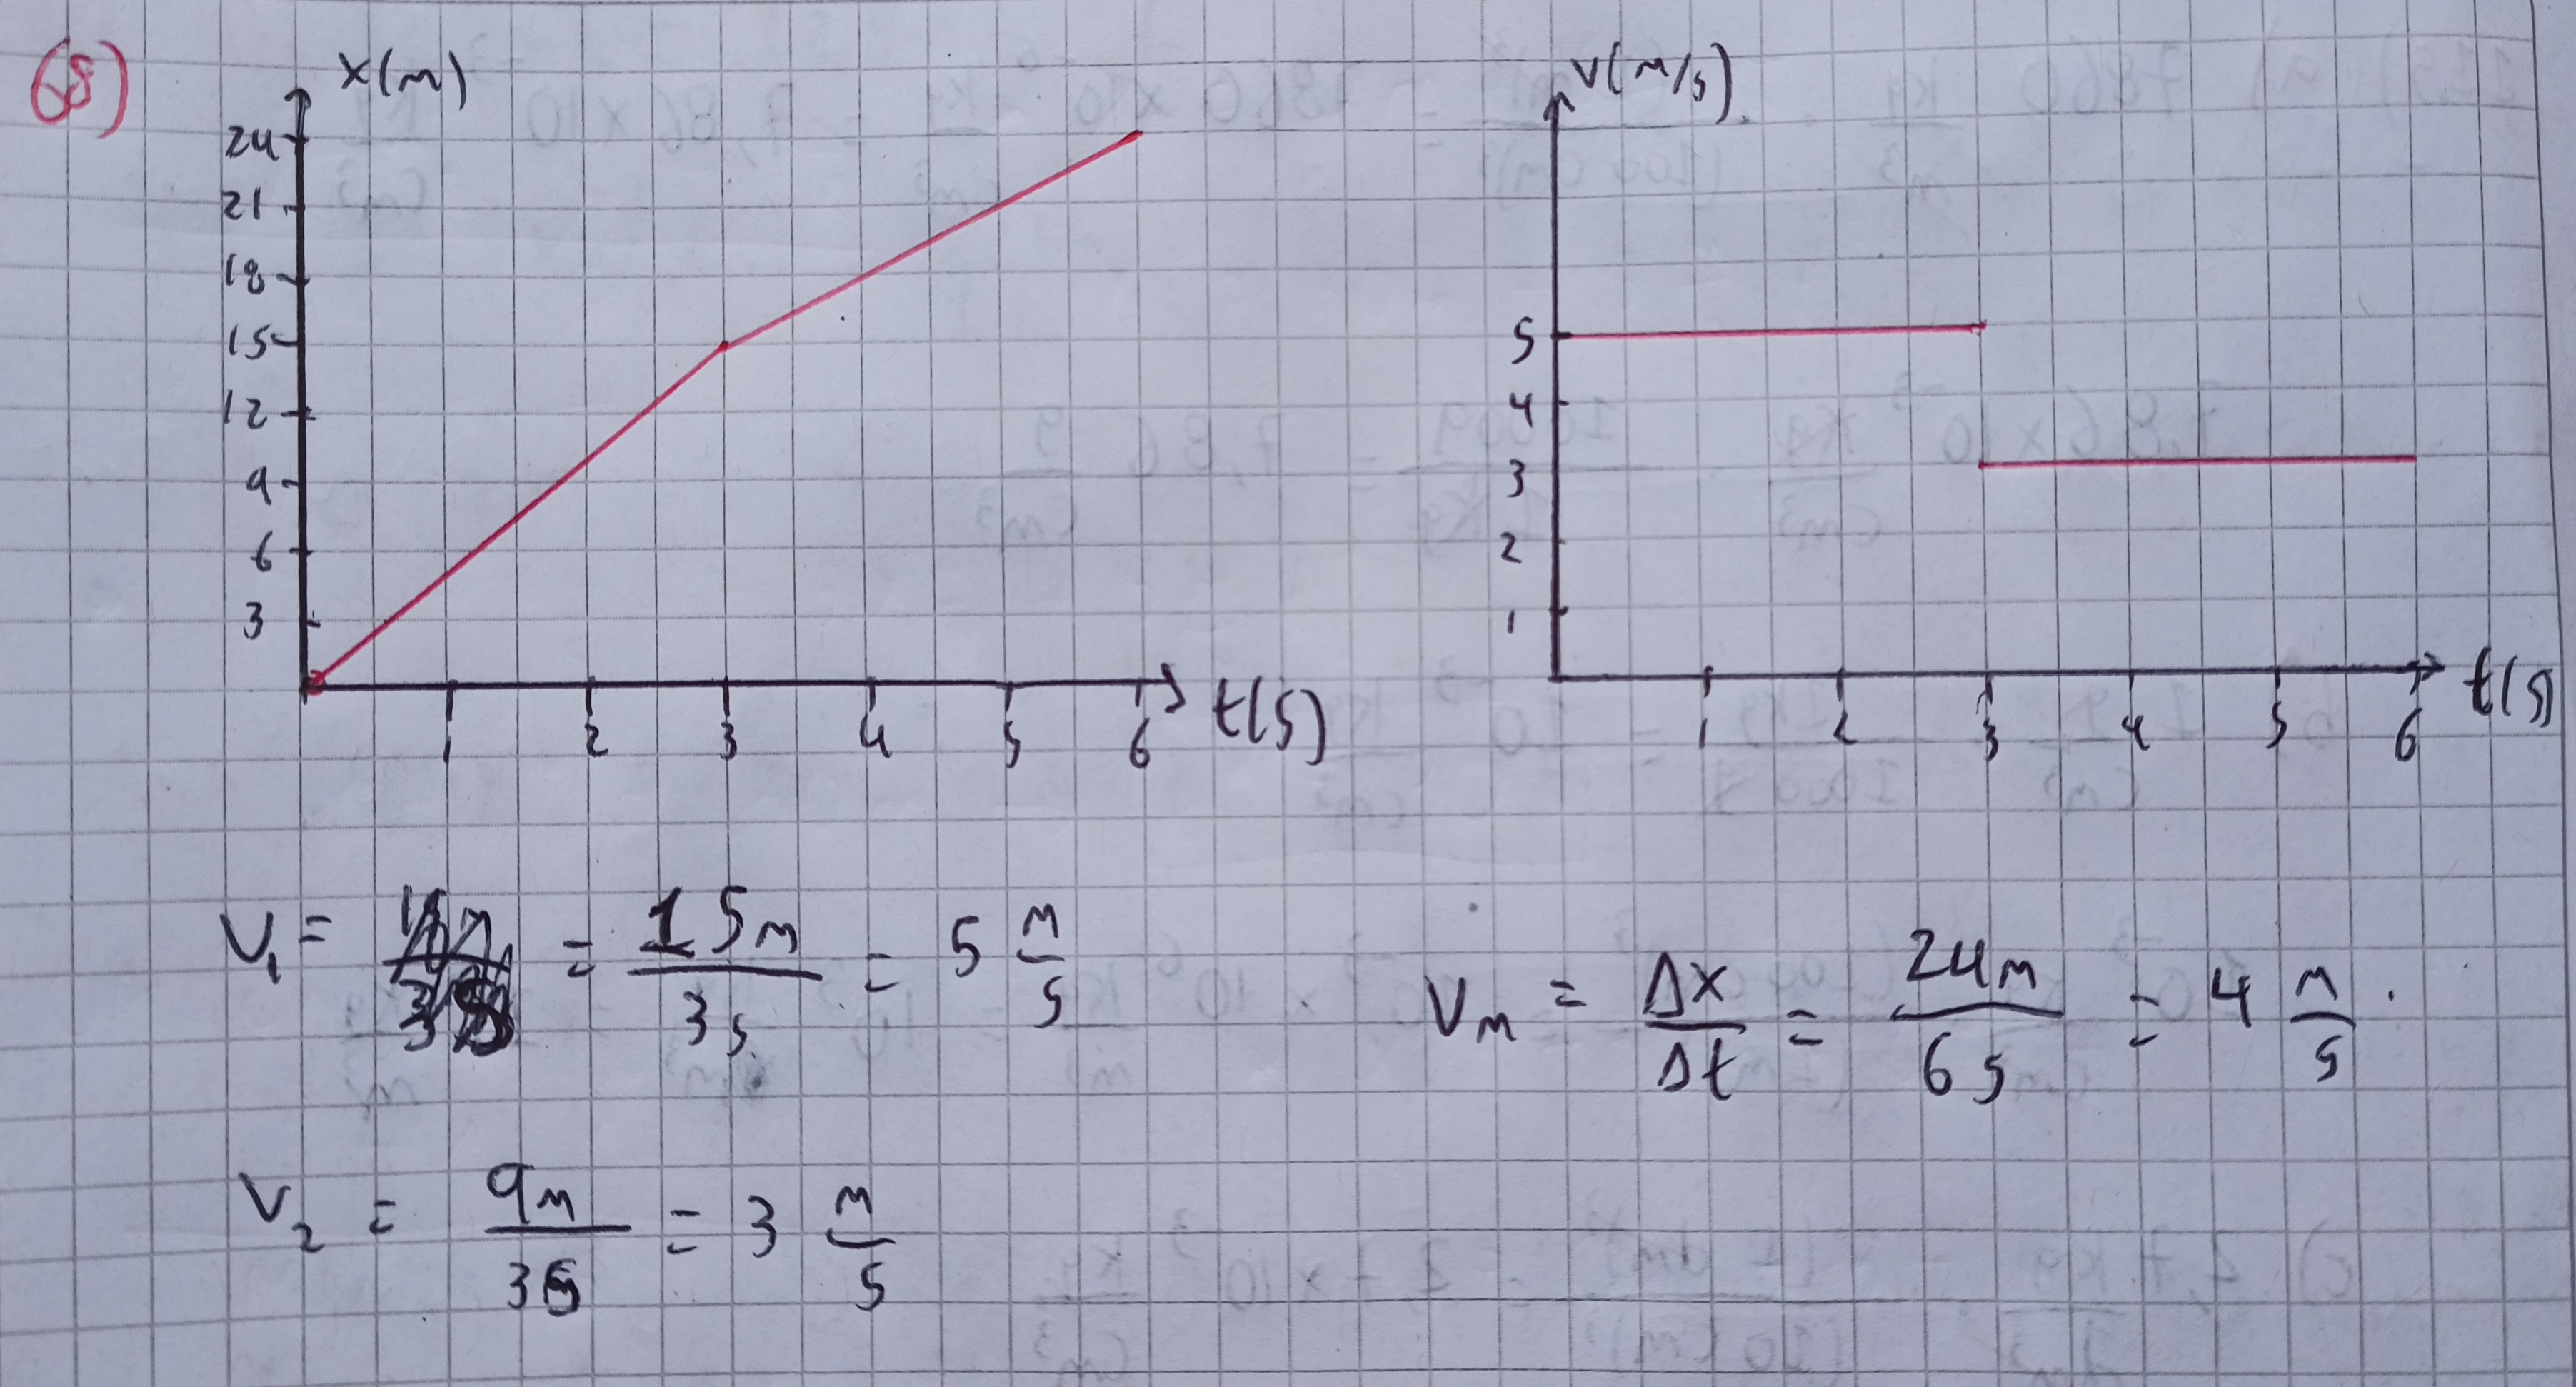 68)
x(m)
24
21
18
15
12
9
6
3
1 2 3 4 5 6 t(s)
v(m/s)
5
4
3
2
1
1 2 3 4 5 6 t(s)
V₁ = = 15m / 3s = 5 m/s
Vm = Δx / Δt = 24m / 6s = 4 m/s.
V₂ = 9m / 3s = 3 m/s